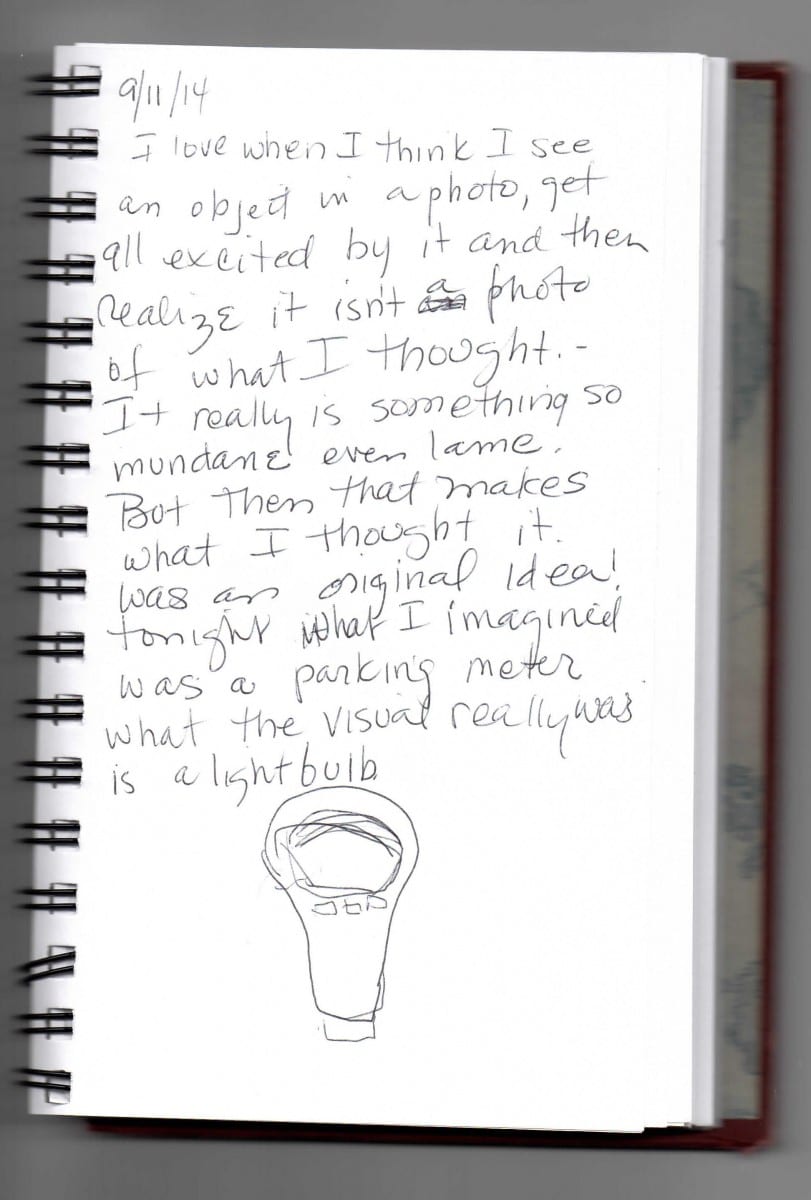 9/11/14
I love when I think I see
an object in a photo, get
all excited by it and then
realize it isn't a photo
of what I thought. -
It really is something so
mundane even lame.
But then that makes
what I thought it.
was an original idea!
tonight what I imagined
was a parking meter
what the visual really was
is a lightbulb